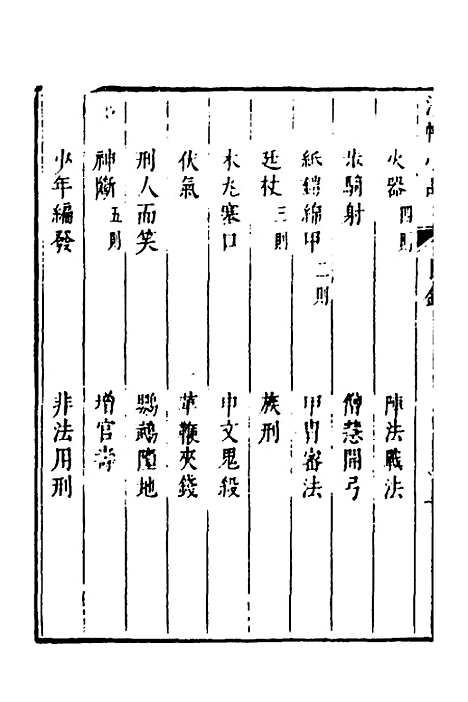 火器四則
陣法戰法
騎射
僧慧開弓
紙鎧綿甲二則
甲冑審法
廷杖三則
族刑
木丸塞口
申文鬼殺
伏氣
革鞭夾錢
刑人而笑
鸚鵡墮地
神斷五則
增官壽
少年編發
非法用刑